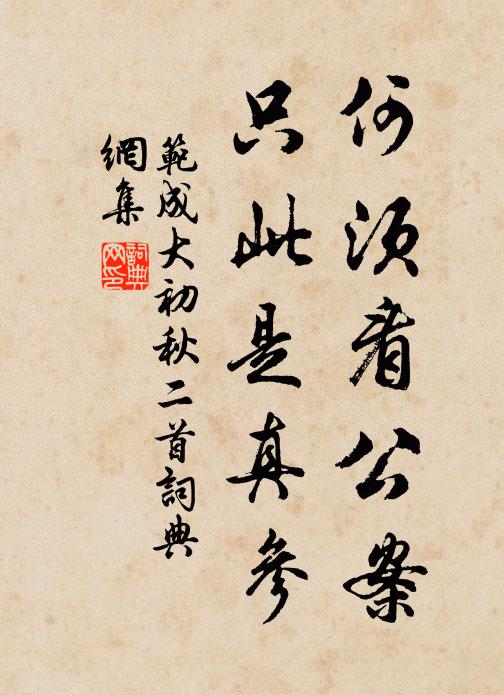 何須看公案
只此是真參
範成大初秋二首詞典
網集
詞典
网印